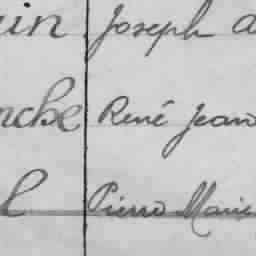 uin Joseph a
nche René Jean
l Pierre Marie